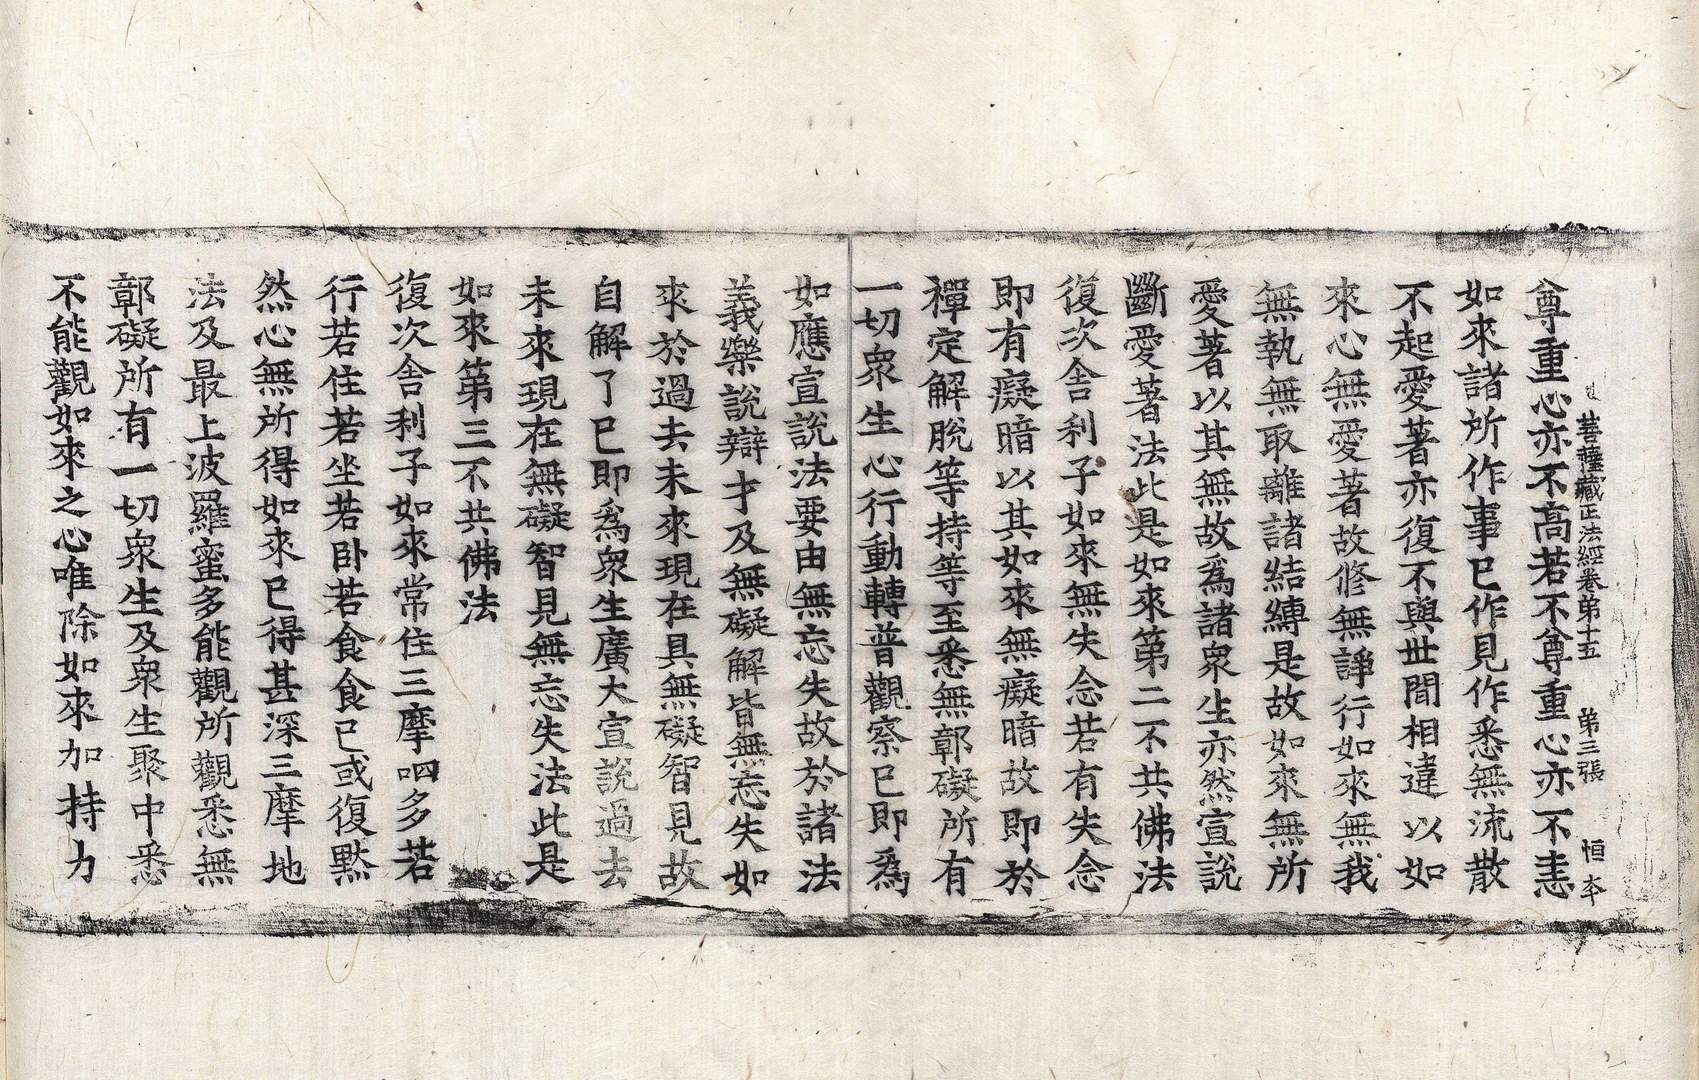 菩薩藏正法經卷第十五 第三張 恒夲
尊重心亦不高若不尊重心亦不恚
如來諸所作事已作見作悉無流散
不起愛著亦復不與世間相違以如
來心無愛著故修無諍行如來無我
無執無取離諸結縛是故如來無所
愛著以其無故爲諸衆生亦然宣說
斷愛著法此是如來第二不共佛法
復次舍利子如來無失念若有失念
即有癡暗以其如來無癡暗故即於
禪定解脫等持等至悉無鄣礙所有
一切衆生心行動轉普觀察已即爲
如應宣說法要由無忘失故於諸法
義樂說辯才及無礙解皆無忘失如
來於過去未來現在具無礙智見故
自解了已即爲衆生廣大宣說過去
未來現在無礙智見無忘失法此是
如來第三不共佛法
復次舍利子如來常住三摩呬多若
行若住若坐若卧若食食已或復默
然心無所得如來已得甚深三摩地
法及最上波羅蜜多能觀所觀悉無
鄣礙所有一切衆生及衆生聚中悉
不能觀如來之心唯除如來加持力